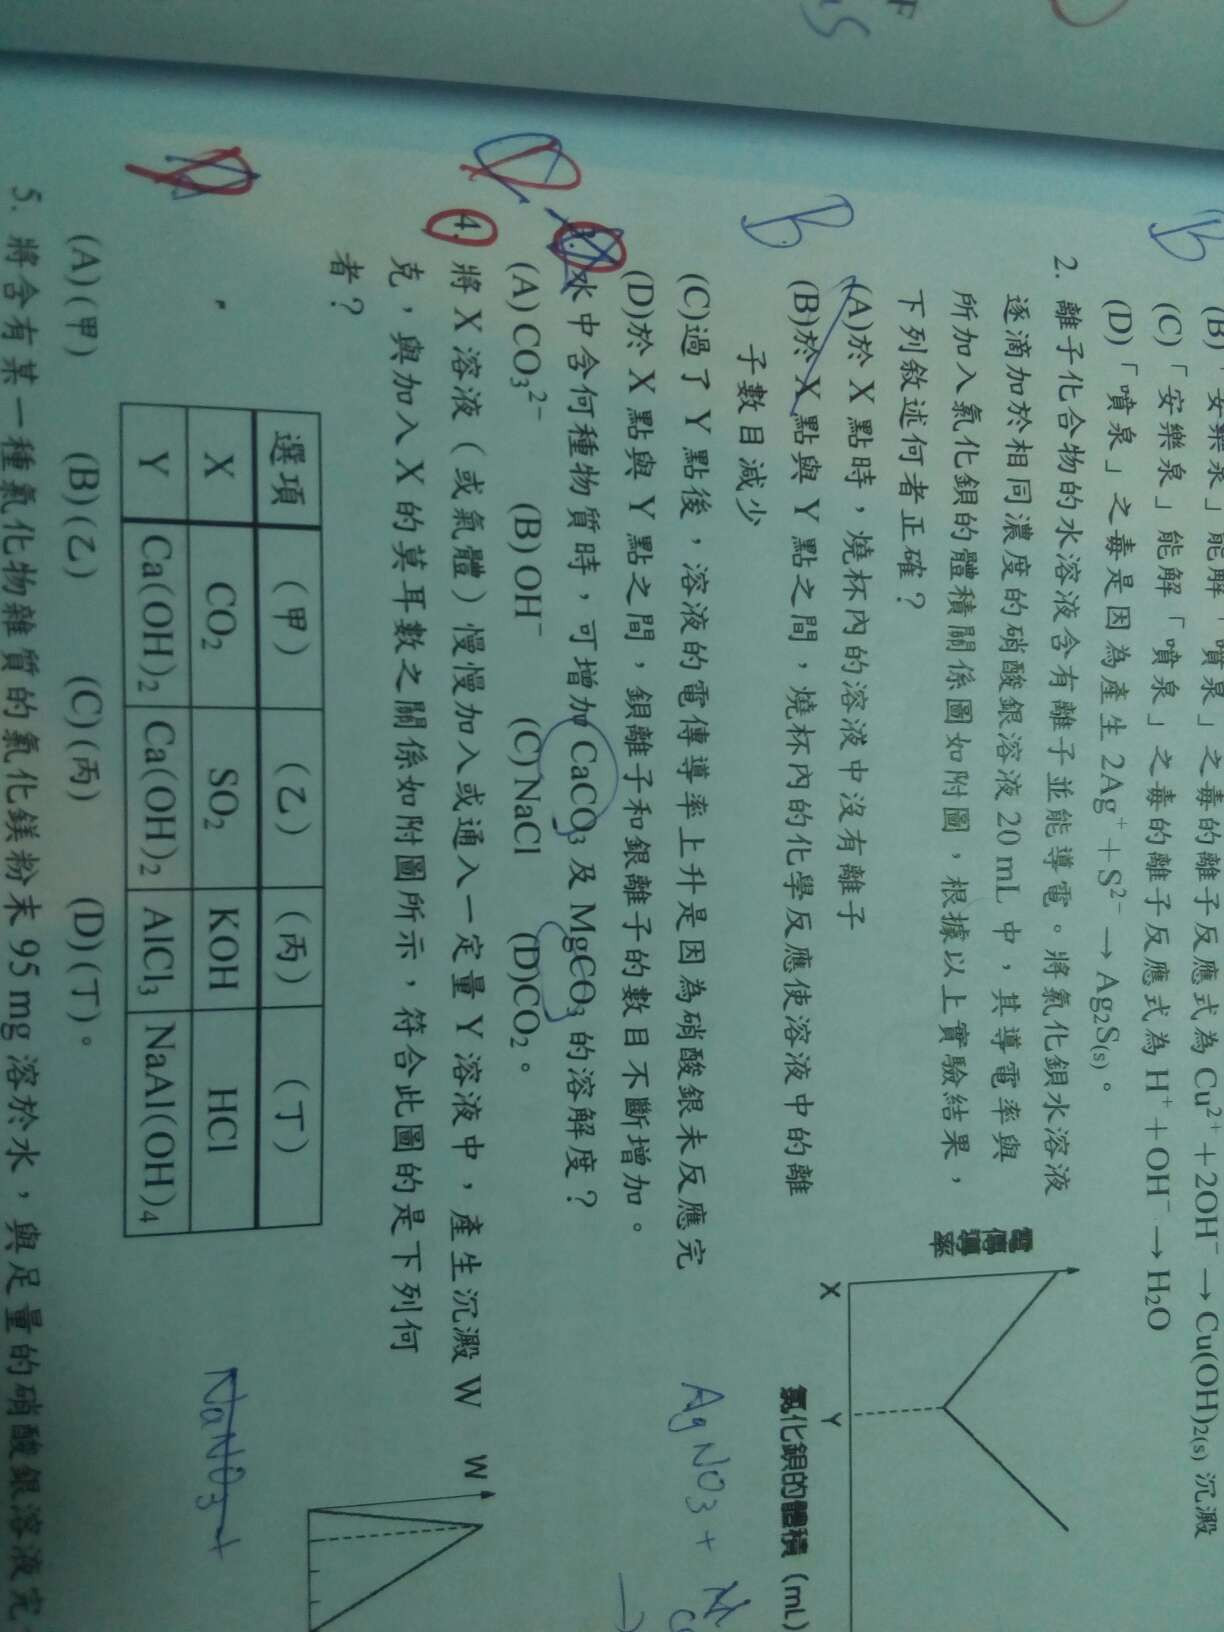 (B)「安樂泉」能解「噴泉」之毒的離子反應式為 Cu²⁺+2OH⁻→Cu(OH)₂₍ₛ₎ 沉澱
(C)「安樂泉」能解「噴泉」之毒的離子反應式為 H⁺+OH⁻→H₂O
(D)「噴泉」之毒是因為產生 2Ag⁺+S²⁻→Ag₂S₍ₛ₎。
B
2. 離子化合物的水溶液含有離子並能導電。將氯化鋇水溶液
逐滴加於相同濃度的硝酸銀溶液 20 mL 中,其導電率與
所加入氯化鋇的體積關係圖如附圖,根據以上實驗結果,
下列敘述何者正確?
(A)於 X 點時,燒杯內的溶液中沒有離子
(B)於 X 點與 Y 點之間,燒杯內的化學反應使溶液中的離
子數目減少
(C)過了 Y 點後,溶液的電傳導率上升是因為硝酸銀未反應完
(D)於 X 點與 Y 點之間,鋇離子和銀離子的數目不斷增加。
B
電傳導率
X
Y
氯化鋇的體積(mL)
AgNO₃ +
水中含何種物質時,可增加 CaCO₃ 及 MgCO₃ 的溶解度?
(A) CO₃²⁻ (B) OH⁻ (C) NaCl (D)CO₂。
4. 將 X 溶液(或氣體)慢慢加入或通入一定量 Y 溶液中,產生沉澱 W
克,與加入 X 的莫耳數之關係如附圖所示,符合此圖的是下列何
者?
W
選項 (甲) (乙) (丙) (丁)
X CO₂ SO₂ KOH HCl
Y Ca(OH)₂ Ca(OH)₂ AlCl₃ NaAl(OH)₄
NaNO₃ +
(A)(甲) (B)(乙) (C)(丙) (D)(丁)。
5. 將含有某一種氯化物雜質的氯化鎂粉末 95 mg 溶於水,與足量的硝酸銀溶液完